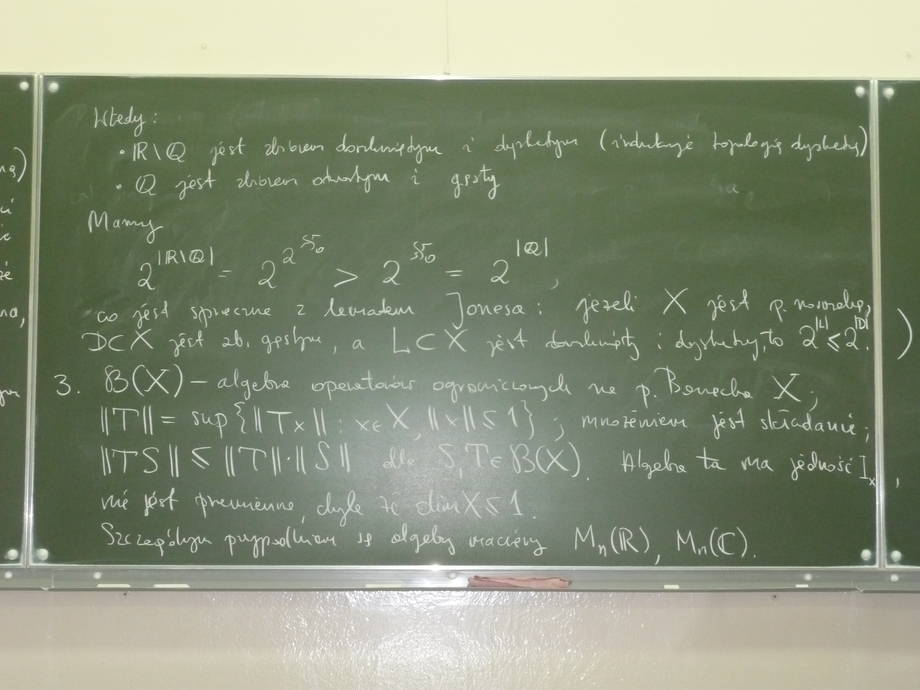 Wtedy:
• ℝ\ℚ jest zbiorem domkniętym i dyskretnym (indukuje topologię dyskretną)
• ℚ jest zbiorem otwartym i gęsty
Mamy
2^|ℝ\ℚ| = 2^2^ℵ₀ > 2^ℵ₀ = 2^|ℚ|,
co jest sprzeczne z lematem Jonesa: jeżeli X jest p. normalną,
D⊂X jest zb. gęstym, a L⊂X jest domknięty i dyskretny, to 2^|L| ≤ 2^|D|. )
3. B(X) – algebra operatorów ograniczonych na p. Banacha X;
||T|| = sup{||Tx||: x∈X, ||x||≤1}; mnożeniem jest składanie;
||TS|| ≤ ||T||·||S|| dla S,T∈B(X). Algebra ta ma jedność I_X,
nie jest przemienna, chyba że dim X ≤ 1.
Szczególnym przypadkiem są algebry macierzy Mₙ(ℝ), Mₙ(ℂ).